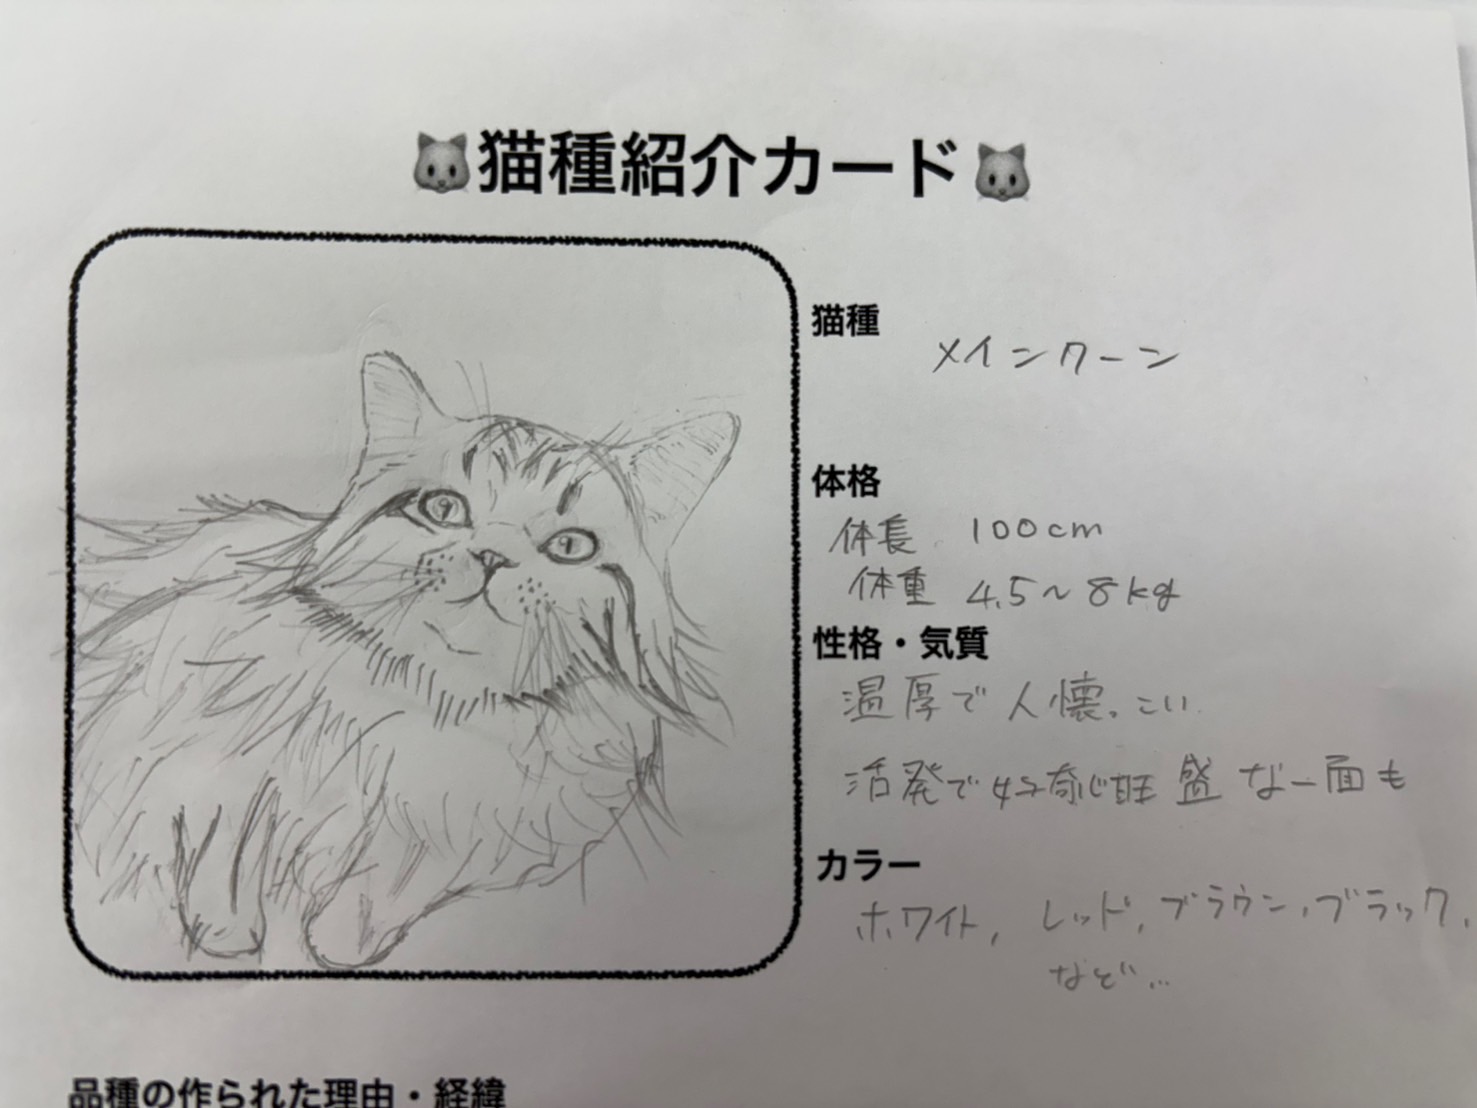 🐱猫種紹介カード🐱
猫種
メインクーン
体格
体長 100cm
体重 4.5~8kg
性格・気質
温厚で人懐っこい
活発で好奇心旺盛な一面も
カラー
ホワイト, レッド, ブラウン, ブラック,
など...
品種の作られた理由・経緯